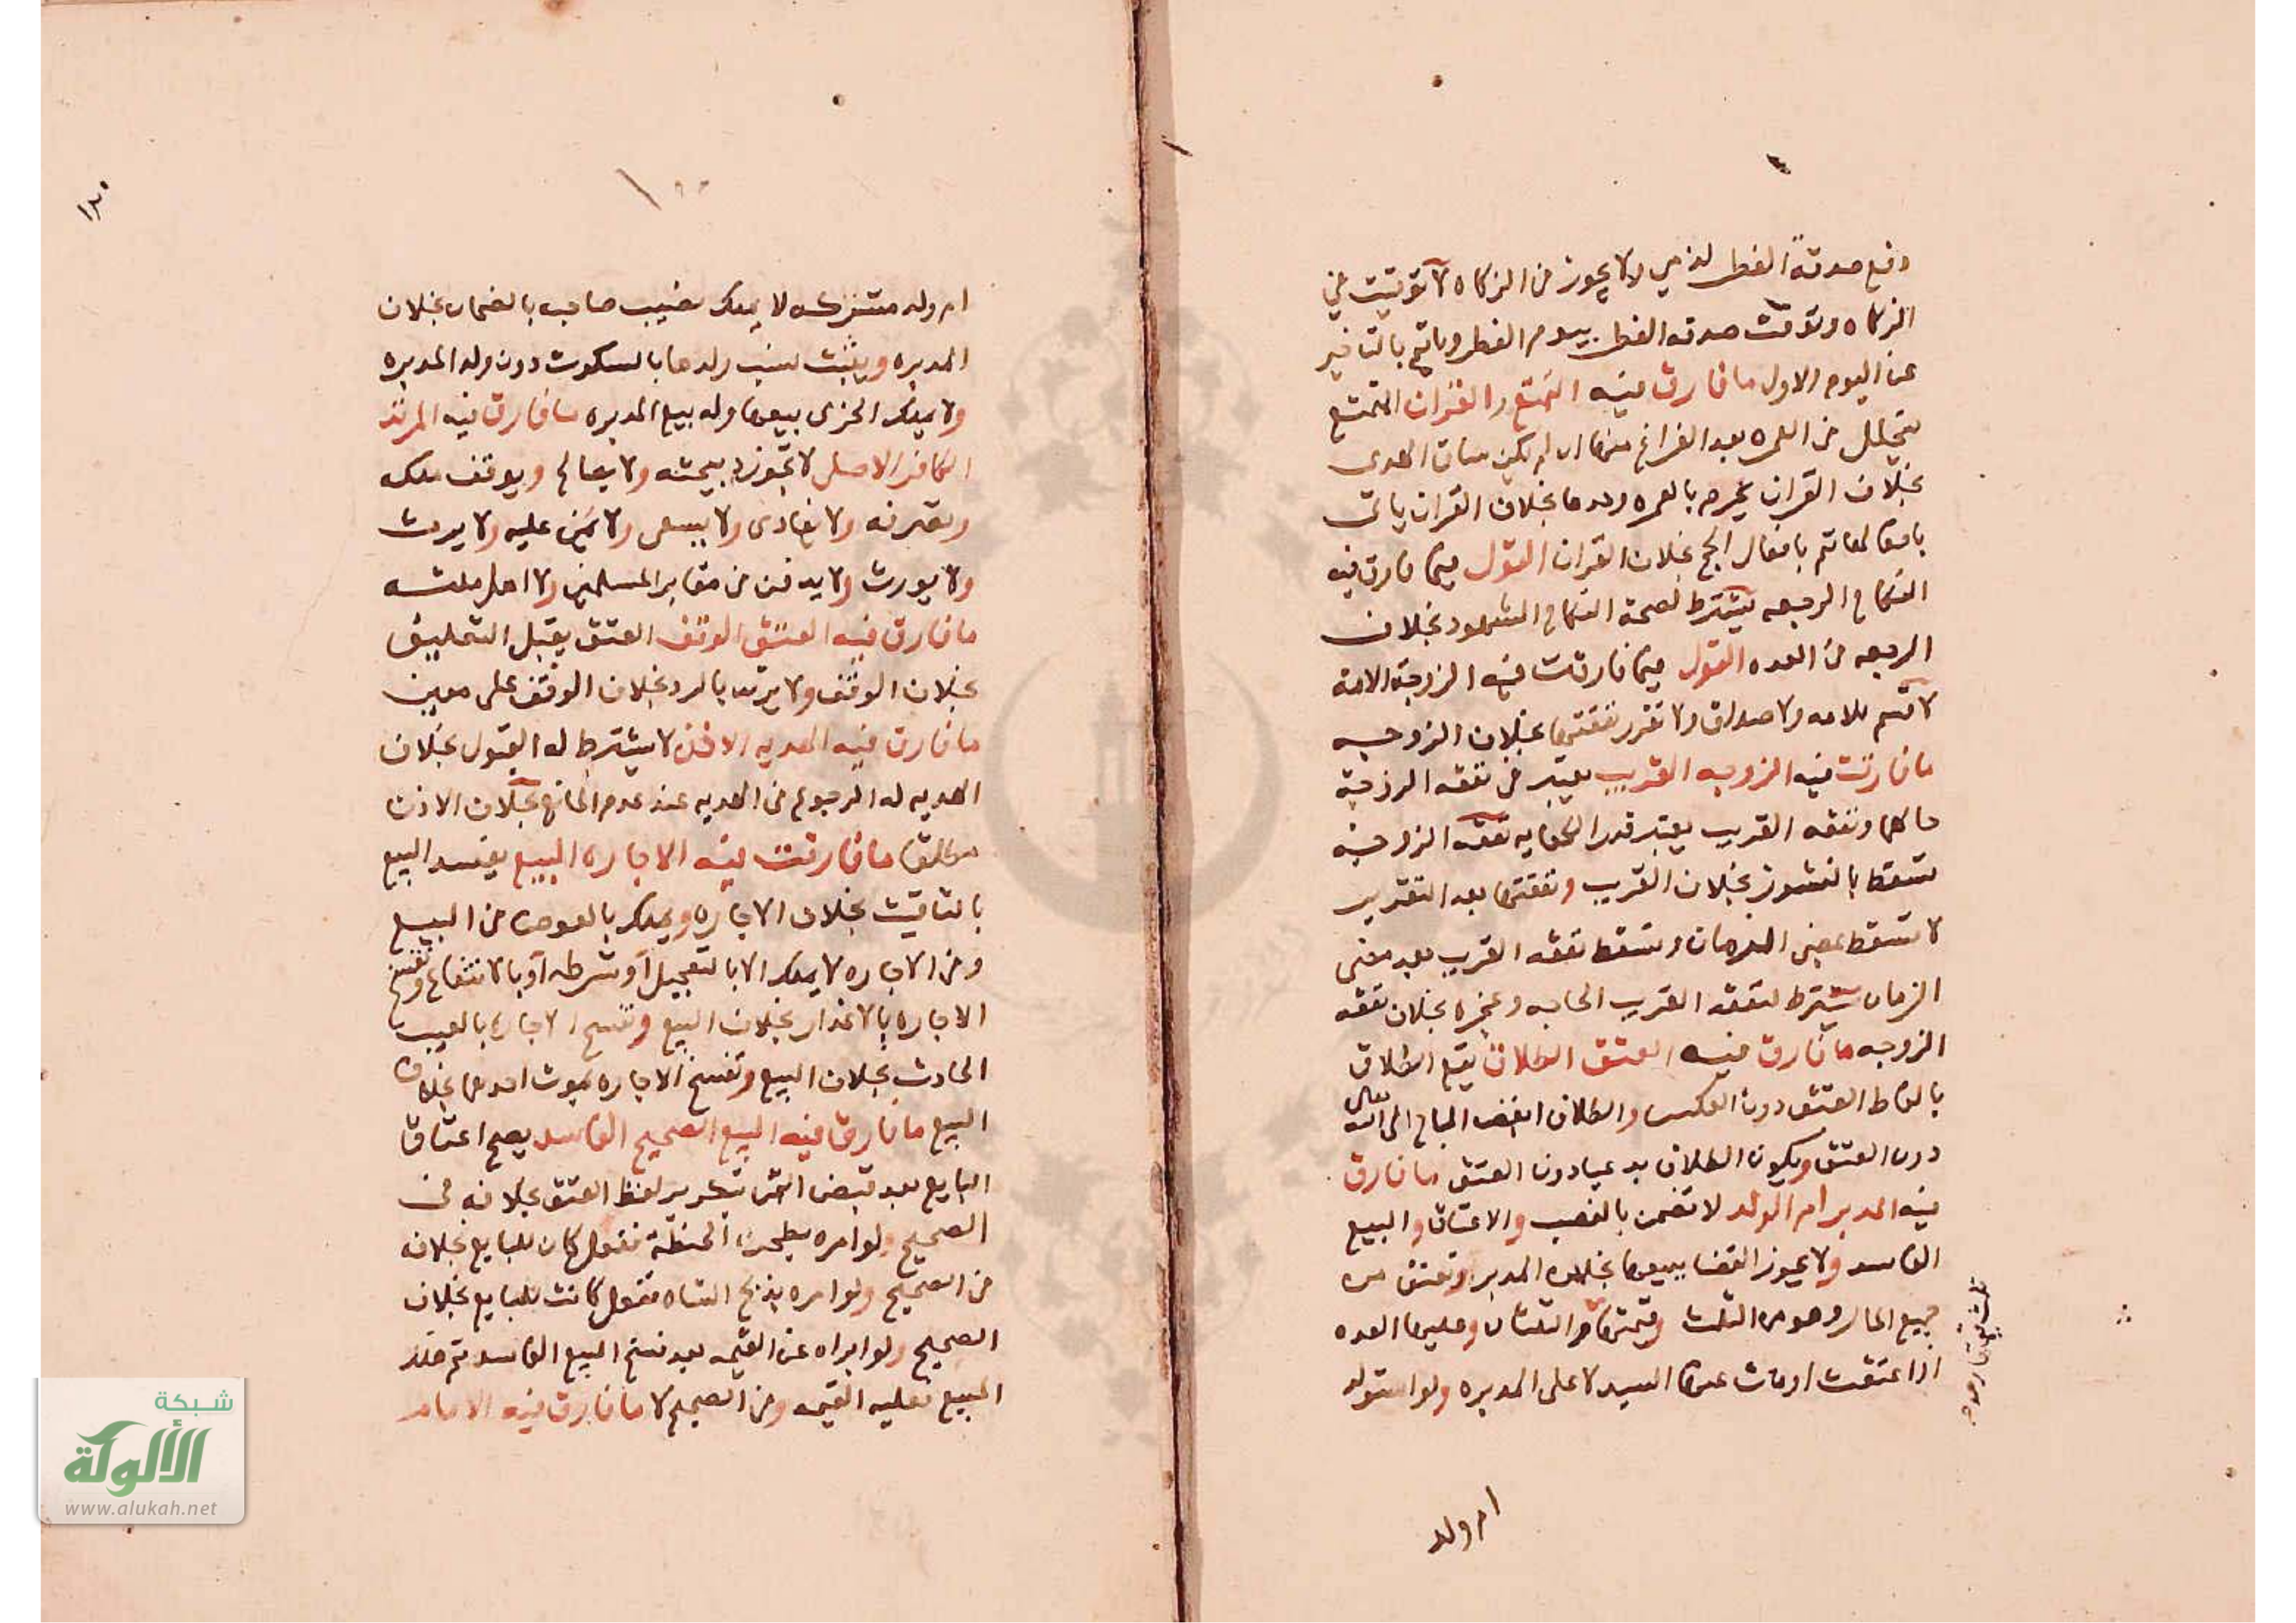 دفع صدقة الفطر لذمي ولا يجوز في الزكاه لا توقيت في
الزكاه وتوقت صدقه الفطر بيوم الفطر وياثم بالتاخير
عن اليوم الاول ما فارق فيه التمتع والقران المتمتع
يتحلل من العمره بعد الفراغ منها ان لم يكن ساق الهدى
بخلاف القران يحرم بالعمره وحدها بخلاف القران ياتى
بافعالها ثم بافعال الحج بخلاف القران القول فيما فارق فيه
النكاح الرجعه يشترط لصحة النكاح الشهود بخلاف
الرجعه من العده القول فيما فارقت فيه الزوجة الامة
لا قسم للامه ولا صداق ولا تقرر نفقتها بخلاف الزوجه
ما فارقت فيه الزوجه القريب يعتبر في نفقه الزوجة
حالهما ونفقه القريب يعتبر قدر الكفايه نفقه الزوجة
تسقط بالنشوز بخلاف القريب ونفقتها بعد التقرير
لا تسقط بمضى الزمان وتسقط نفقه القريب بعد مضى
الزمان يشترط لنفقه القريب الحاجه وعجزه بخلاف نفقه
الزوجه ما فارق فيه العتق الطلاق يقع الطلاق
بالفاظ العتق دون العكس والطلاق ابغض المباح الى الله تعالى
دون العتق ويكون الطلاق بدعيا دون العتق ما فارق
فيه المدبر ام الولد لا تضمن بالغصب والاعتاق والبيع
الفاسد ولا يجوز القضا ببيعها بخلاف المدبر وتعتق من
جميع المال وهو من الثلث وقيمتها الثلثان وعليها العده
اذا عتقت او مات عنها السيد لا على المدبره ولو استولد
ام ولد
ام ولد مشتركه لا يملك نصيب صاحبه بالضمان بخلاف
المدبره ويثبت نسب ولدها بالسكوت دون ولد المدبره
ولا يملك الحربى بيعها وله بيع المدبره ما فارق فيه المرتد
الكافر الاصلى لا تجوز ذبيحته ولا يصالح ويوقف ملكه
وتصرفه ولا يفادى ولا يسبى ولا يمن عليه ولا يرث
ولا يورث ولا يدفن في مقابر المسلمين ولا اهل ملته
ما فارق فيه العتق الوقف العتق يقبل التعليق
بخلاف الوقف ولا يرتد بالرد بخلاف الوقف على معين
ما فارق فيه الهديه الاذن لا يشترط له القبول بخلاف
الهديه له الرجوع في الهديه عند عدم المانع بخلاف الاذن
مطلقا ما فارقت فيه الاجاره البيع يفسد البيع
بالتاقيت بخلاف الاجاره ويملك بالعوض في البيع
وفي الاجاره لا يملك الا بالتعجيل او شرطه او بالانتفاع وتفسخ
الاجاره بالاعذار بخلاف البيع وتفسخ الاجاره بالعيب
الحادث بخلاف البيع وتفسخ الاجاره بموت احدهما بخلاف
البيع ما فارق فيه البيع الصحيح الفاسد يصح اعتاق
البايع بعد قبض المشترى بتكرير لفظ العتق بخلافه في
الصحيح ولو امره بطحن الحنطة ففعل كان للبايع بخلافه
في الصحيح ولو امره بذبح الشاه ففعل كانت للبايع بخلاف
الصحيح ولو ابراه عن القيمه بعد فسخ البيع الفاسد ثم هلك
المبيع فعليه القيمه وفي الصحيح لا ما فارق فيه الامام
شبكة
الألوكة
www.alukah.net